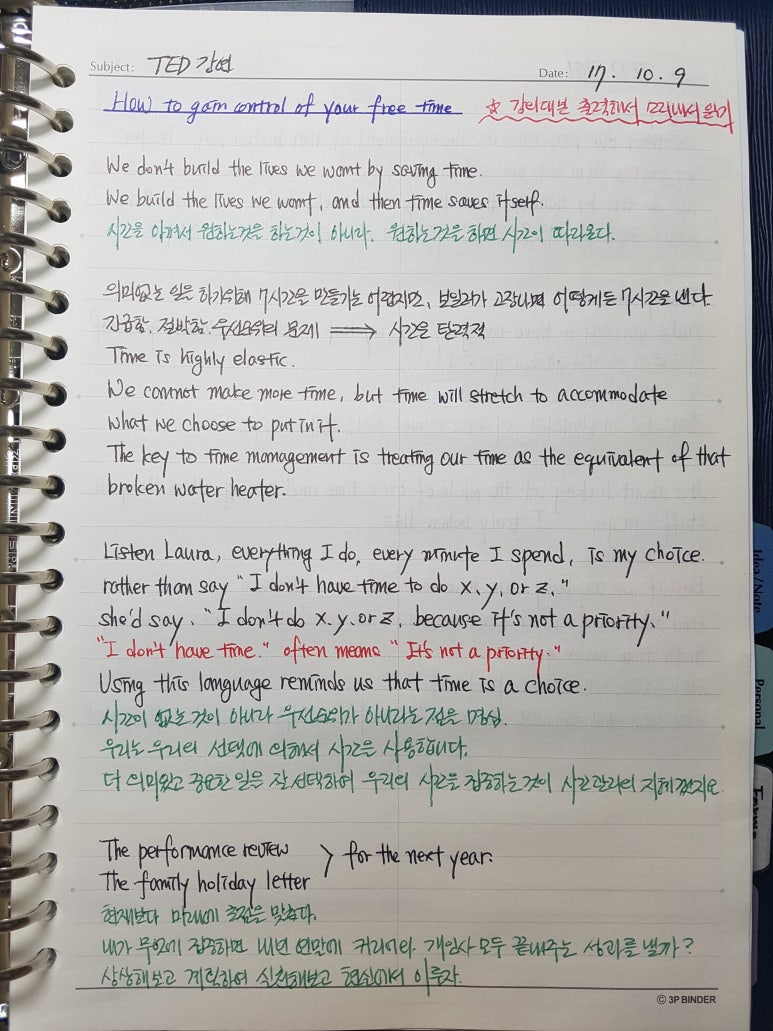 Subject: TED 강연
Date: 17. 10. 9
How to gain control of your free time ☆ 강의대본 출력해서 모여나서 읽기
We don't build the lives we want by saving time.
We build the lives we want, and then time saves itself.
시간을 아껴서 원하는것을 하는것이 아니라. 원하는것을 하면 시간이 따라온다.
의미없는 일은 하기위해 7시간을 만들기는 어렵지만, 보일러가 고장나면 어떻게든 7시간을 낸다
지급함. 절박함. 우선순위의 문제 ⟹ 시간은 탄력적
Time is highly elastic.
We cannot make more time, but time will stretch to accommodate
what we choose to put in it.
The key to time management is treating our time as the equivalent of that
broken water heater.
Listen Laura, everything I do, every minute I spend, is my choice.
rather than say "I don't have time to do x, y, or z,"
she'd say. "I don't do x. y. or z, because it's not a priority."
"I don't have time." often means "It's not a priority."
Using this language reminds us that time is a choice.
시간이 없는것이 아니라 우선순위가 아니라는 점을 명심.
우리는 우리의 선택에 의해서 시간은 사용합니다.
더 의미있고 중요한 일은 잘 선택하여 우리의 시간을 집중하는것이 시간관리의 지혜겠지요
The performance review
The family holiday letter > for the next year.
현재보다 미래에 초점을 맞춘다.
내가 무엇에 집중하면 내년 연말에 커리어와 개인사 모두 끝내주는 성과를 낼까?
상상해보고 계획하여 실천해보고 현실에서 이루자.
© 3P BINDER
Idea/Note
Personal